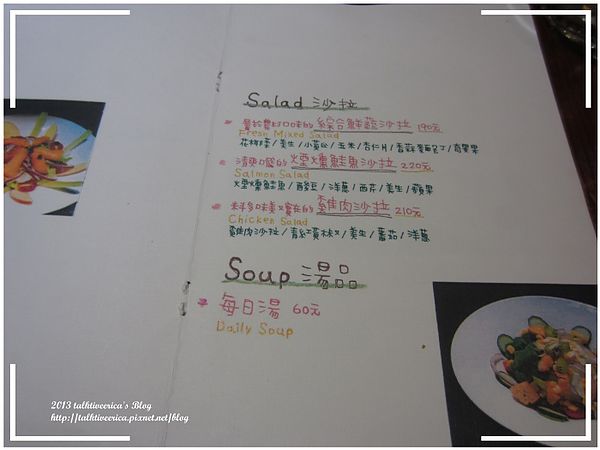 Salad 沙拉
綜合鮮蔬沙拉 190元
Fresh Mixed Salad
花椰菜/美生/小黃瓜/玉米/杏仁片/香蒜麵包丁/奇異果
清爽口感的 煙燻鮭魚沙拉 220元
Salmon Salad
煙燻鮭魚/酸豆/洋蔥/西芹/美生/蘋果
料多味美又實在的 雞肉沙拉 210元
Chicken Salad
雞肉沙拉/青紅黃椒/美生/蕃茄/洋蔥
Soup 湯品
每日湯 60元
Daily Soup
2013 talktiveerica's Blog
http://talktiveerica.pixnet.net/blog